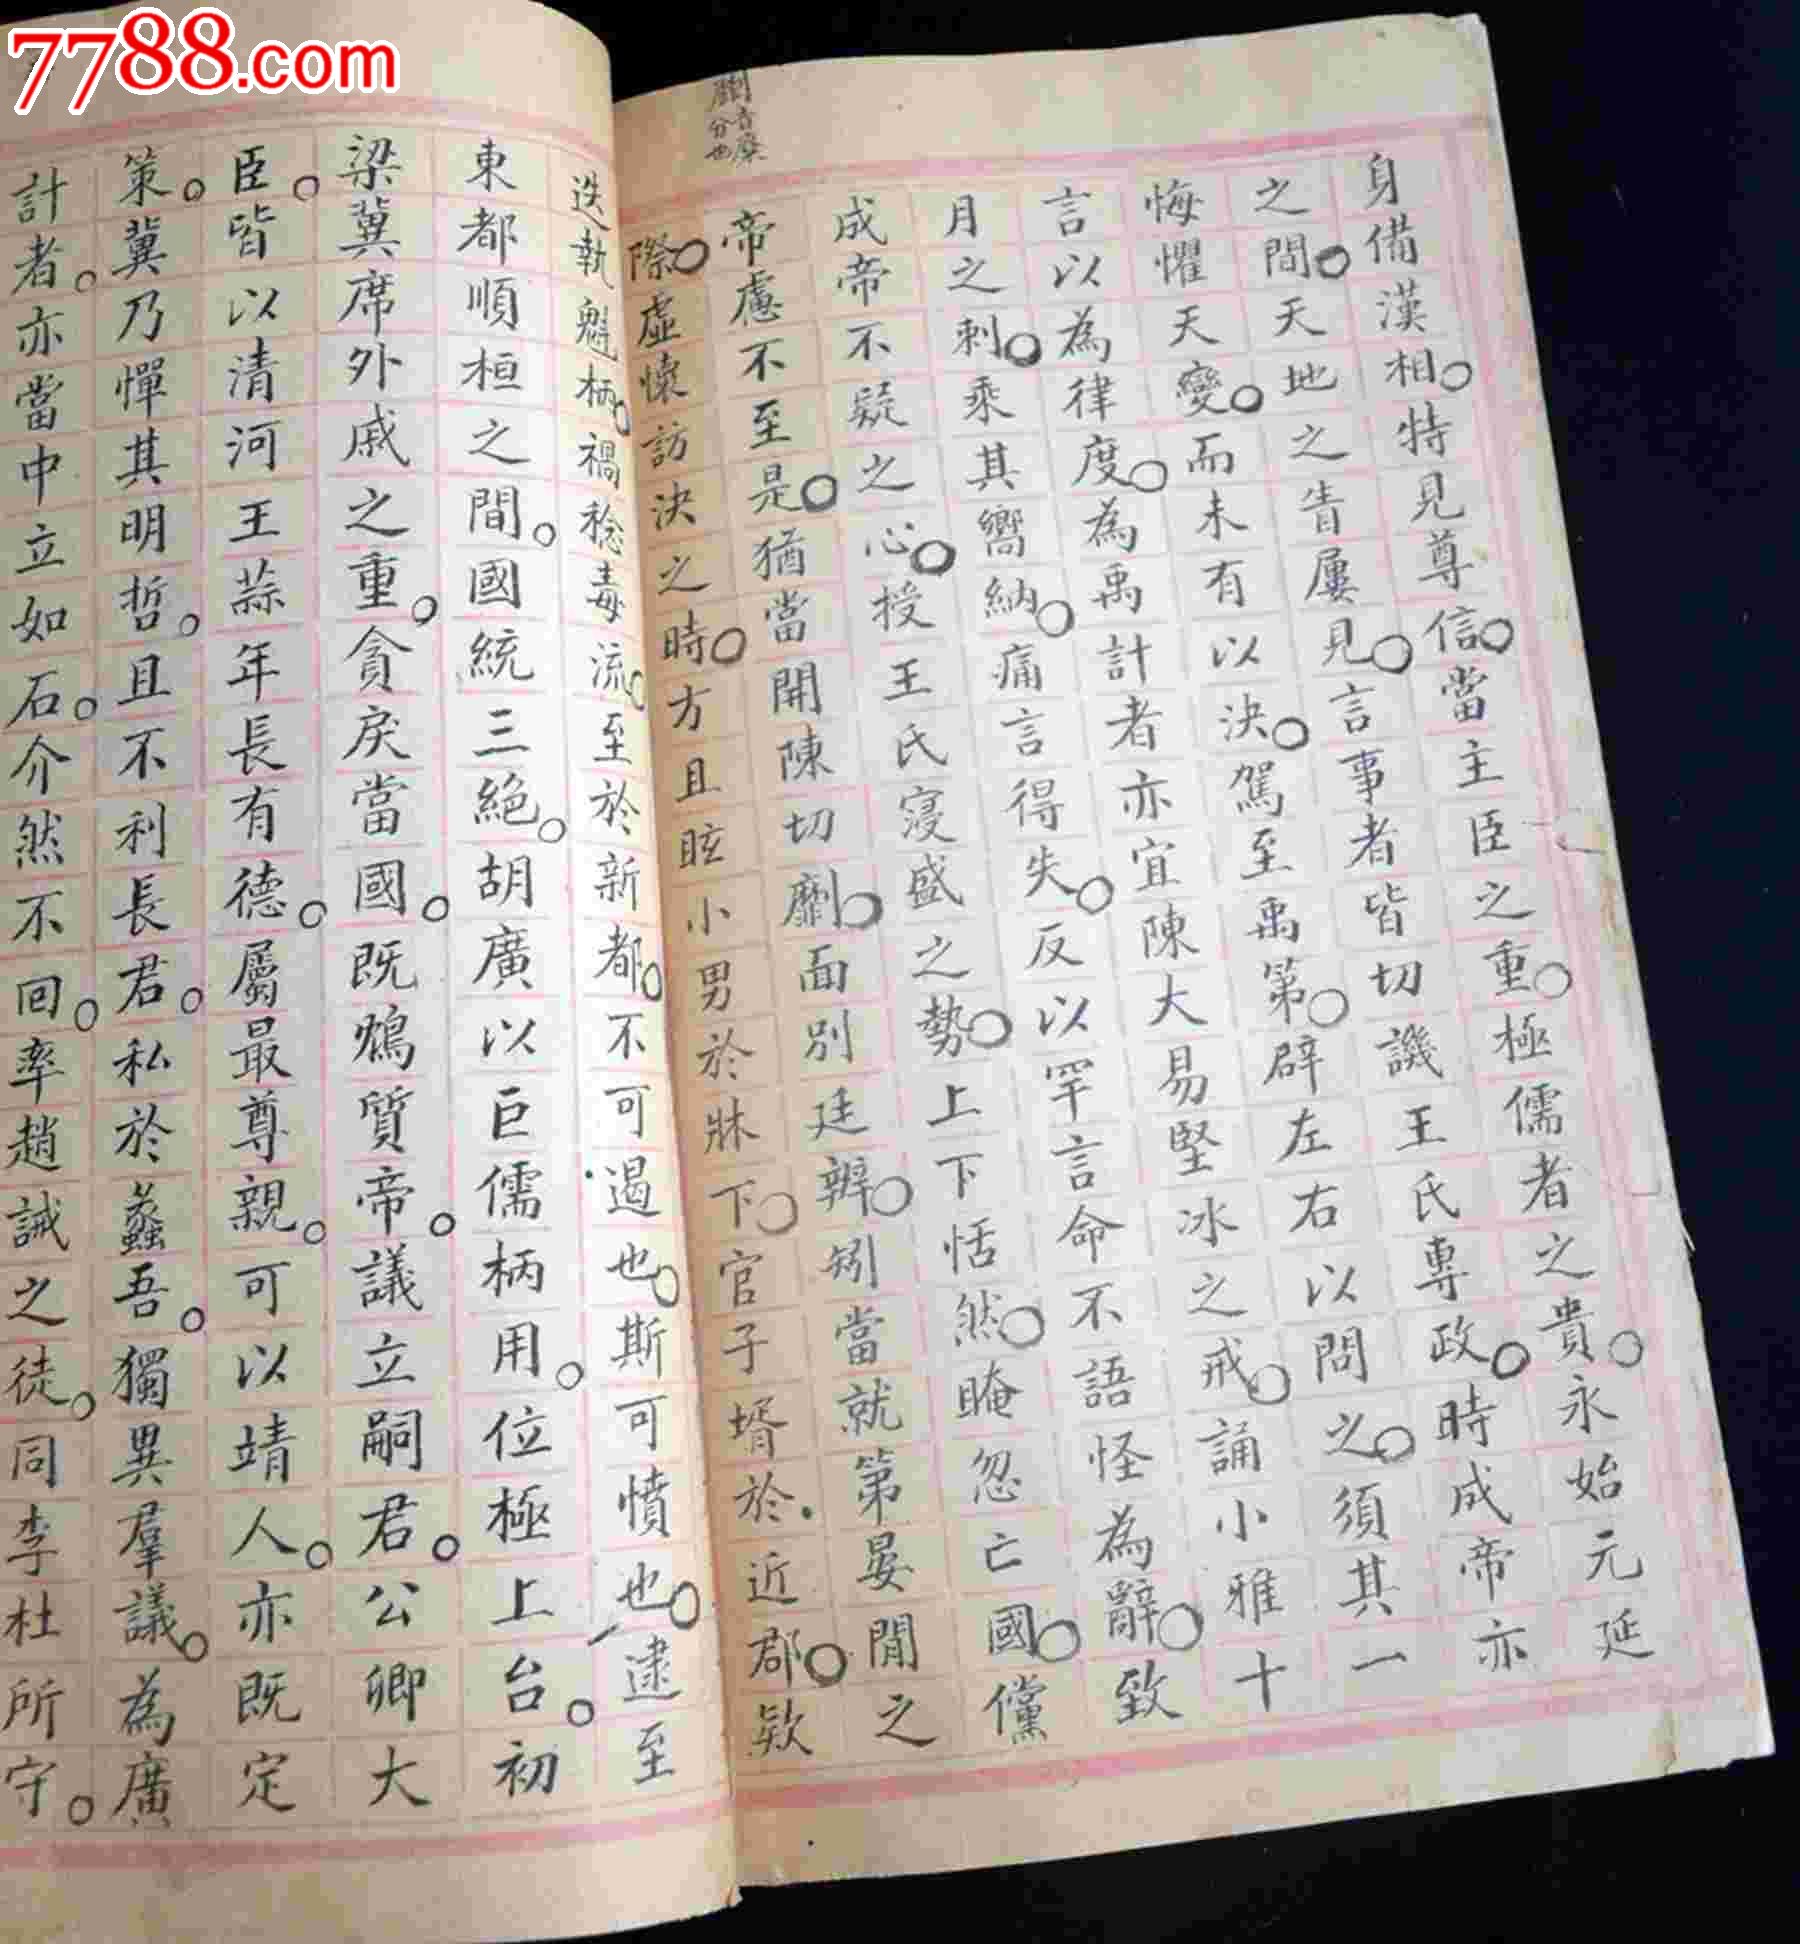 7788.com
劘音糜
分也
身備漢相特見尊信當主臣之重極儒者之貴永始元延
之間天地之眚屢見言事者皆切譏王氏專政時成帝亦
悔懼天變而未有以決駕至禹第辟左右以問之須其一
言以為律度為禹計者亦宜陳大易堅冰之戒誦小雅十
月之刺乘其嚮納痛言得失反以罕言命不語怪為辭致
成帝不疑之心授王氏寖盛之勢上下恬然晻忽亡國儻
帝慮不至是猶當開陳切劘面別廷辨矧當就第晏閒之
際虛懷訪決之時方且眩小男於牀下官子壻於近郡欵
迭執魁柄禍稔毒流至於新都不可遏也斯可憤也逮至
東都順桓之間國統三絕胡廣以巨儒柄用位極上台初
梁冀席外戚之重貪戾當國既鴆質帝議立嗣君公卿大
臣皆以清河王蒜年長有德屬最尊親可以靖人亦既定
策冀乃憚其明哲且不利長君私於蠡吾獨異羣議為廣
計者亦當中立如石介然不回率趙誡之徒同李杜所守